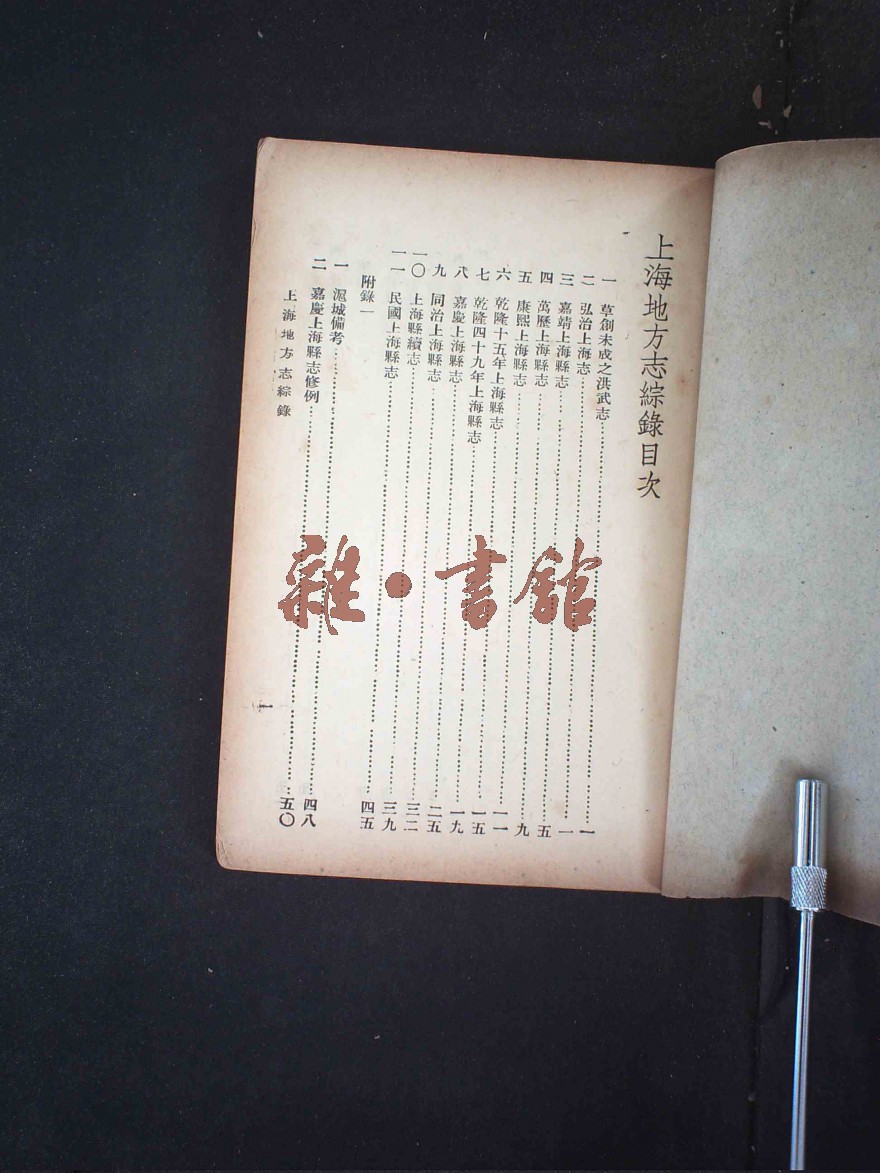 上海地方志綜錄目次
一 草創未成之洪武志……一
二 弘治上海志……一
三 嘉靖上海縣志……五
四 萬歷上海縣志……九
五 康熙上海縣志……一一
六 乾隆十五年上海縣志……一五
七 乾隆四十九年上海縣志……一九
八 嘉慶上海縣志……二五
九 同治上海縣志……三二
一〇 上海縣續志……三九
一一 民國上海縣志……四五
附錄一
一 滬城備考……四八
二 嘉慶上海縣志修例……五〇
上海地方志綜錄
一
雜·書館